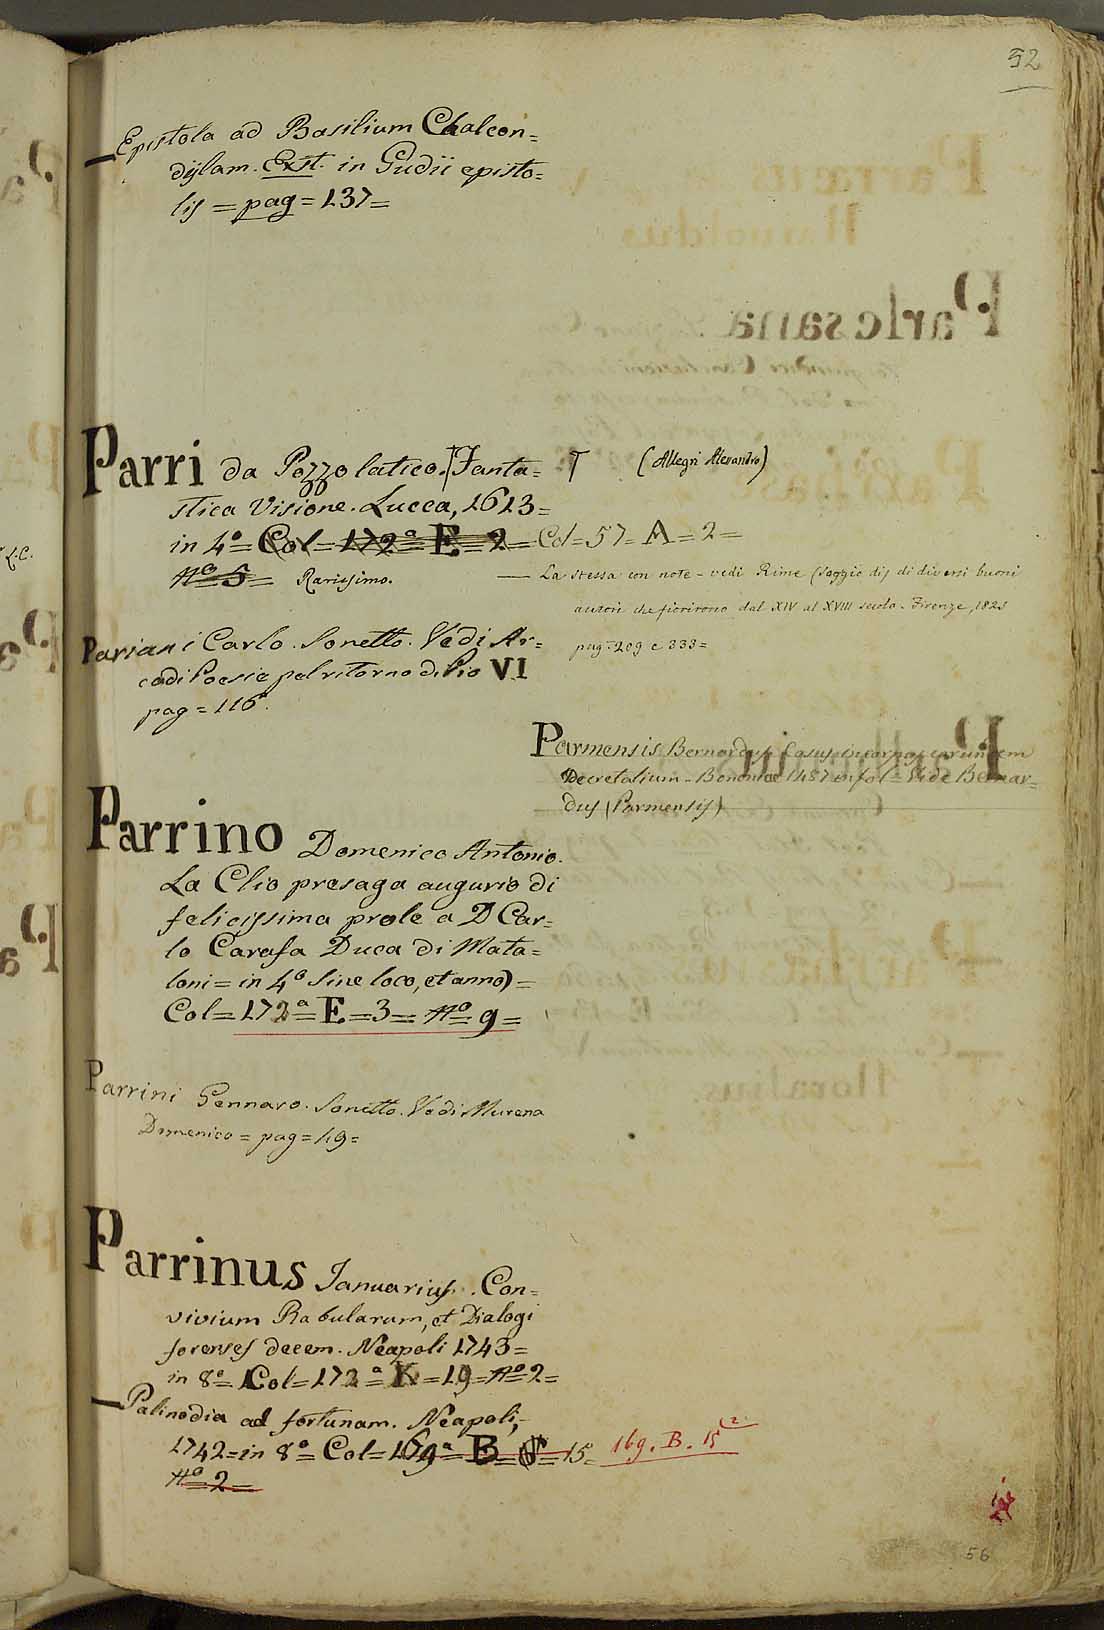 52
— Epistola ad Basilium Chalcon=
dijlam. Exst. in Gudii episto=
lis = pag = 137=
Parri da Pozzolatico. Fanta=
stica Visione. Lucca, 1613=
in 4º= Col= 172ª= E= 2= Col=57= A=2=
Nº 5= Rarissimo.
T (Allegri Alessandro)
— La stessa con note - vedi Rime (Saggio di) di diversi buoni
autori che fiorirono dal XIV al XVIII secolo - Firenze, 1825
pag= 209 e 333=
Pariani Carlo. Sonetto. Vedi Ar=
cadi Poesie pel ritorno di Pio VI
pag= 116.
Parmensis Bernardus Casus in
Decretalium - Bononiae 1487 in fol= Vide Bernar=
dus (Parmensis)
Parrino Domenico Antonio.
La Clio presaga augurio di
felicissima prole a D Car=
lo Carafa Duca di Mata=
loni= in 4º Sine loco, et anno)=
Col= 172ª= E=3= Nº 9=
Parrini Gennaro. Sonetto. Vedi Murena
Domenico = pag= 49=
Parrinus Januarius. Con=
vivium Rabularum, et Dialogi
forenses decem. Neapoli 1743=
in 8º= Col= 172ª= K=19= Nº 2=
— Palinodia ad fortunam. Neapoli,
1742= in 8º= Col= 169ª= B= 15=
Nº 2=
169. B. 15 (2.
56